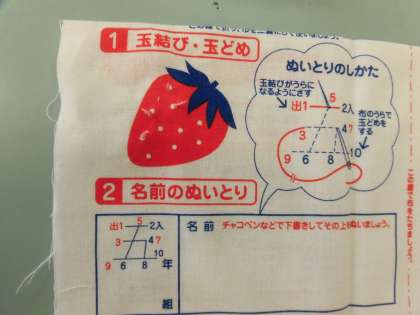 1 玉結び・玉どめ
ぬいとりのしかた
玉結びがうらに
なるようにさす
布のうらで
玉どめを
する
5
出1 2入
3 4 7
9 6 8 10
11
2 名前のぬいとり
5
出1 2入
3 4 7
9 6 8 10
年
組
名前 チャコペンなどで下書きしてその上をぬいましょう。
この線で布をたちましょう。